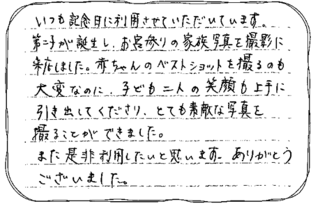 いつも記念日に利用させていただいています。
第二子が誕生し、お宮参りの家族写真を撮影に
来店しました。赤ちゃんのベストショットを撮るのも
大変なのに、子ども二人の笑顔も上手に
引き出してくださり、とても素敵な写真を
撮ることができました。
また是非利用したいと思います。ありがとう
ございました。